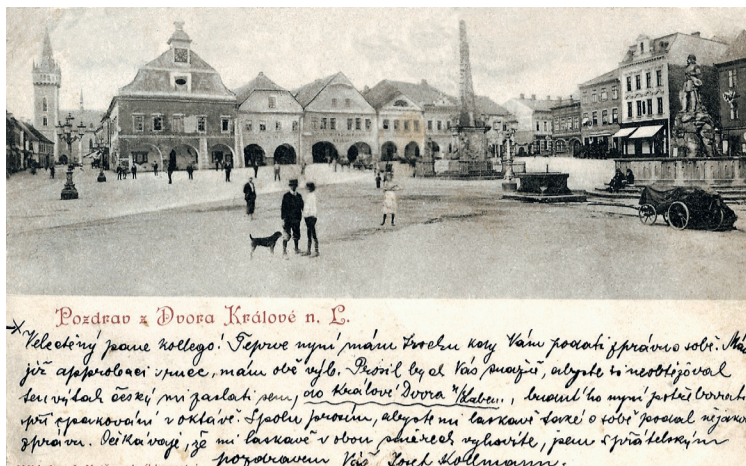 Pozdrav z Dvora Králové n. L.
Velectěný pane kollego! Teprve nyní mám trochu kdy Vám podati zprávu o sobě.
již approbaci v ruce, mám obě výb. Prosil bych Vás snažně, abyste si neobtěžoval
český mi zaslati sem, do Králové Dvora n/Labem, budu ho nyní potřebovati
při opakování v oktávě. Spolu prosím, abyste mi laskavě také o sobě podal
zprávu. Očekávaje, že mi laskavě v obou směrech vyhovíte, jsem s přátelským
pozdravem Váš Josef Kollmann.